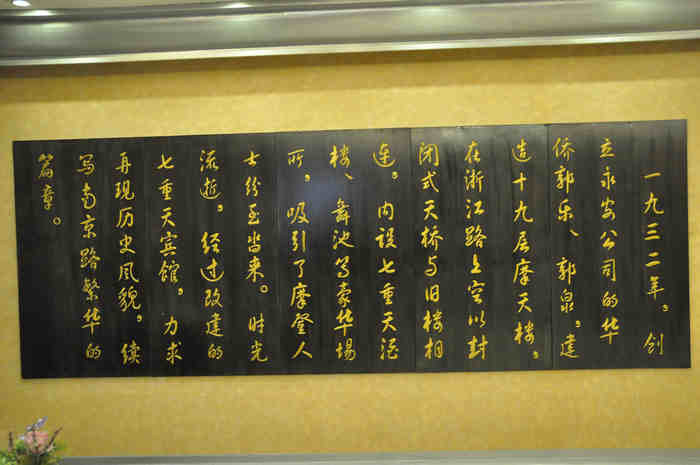 一九三二年。创
立永安公司的华
侨郭乐、郭泉。建
造十九层摩天楼。
在浙江路上空以封
闭式天桥与旧楼相
连。内设七重天酒
楼、舞池等豪华场
所。吸引了摩登人
士纷至沓来。时光
流逝。经过改建的
七重天宾馆。力求
再现历史风貌。续
写南京路繁华的
篇章。